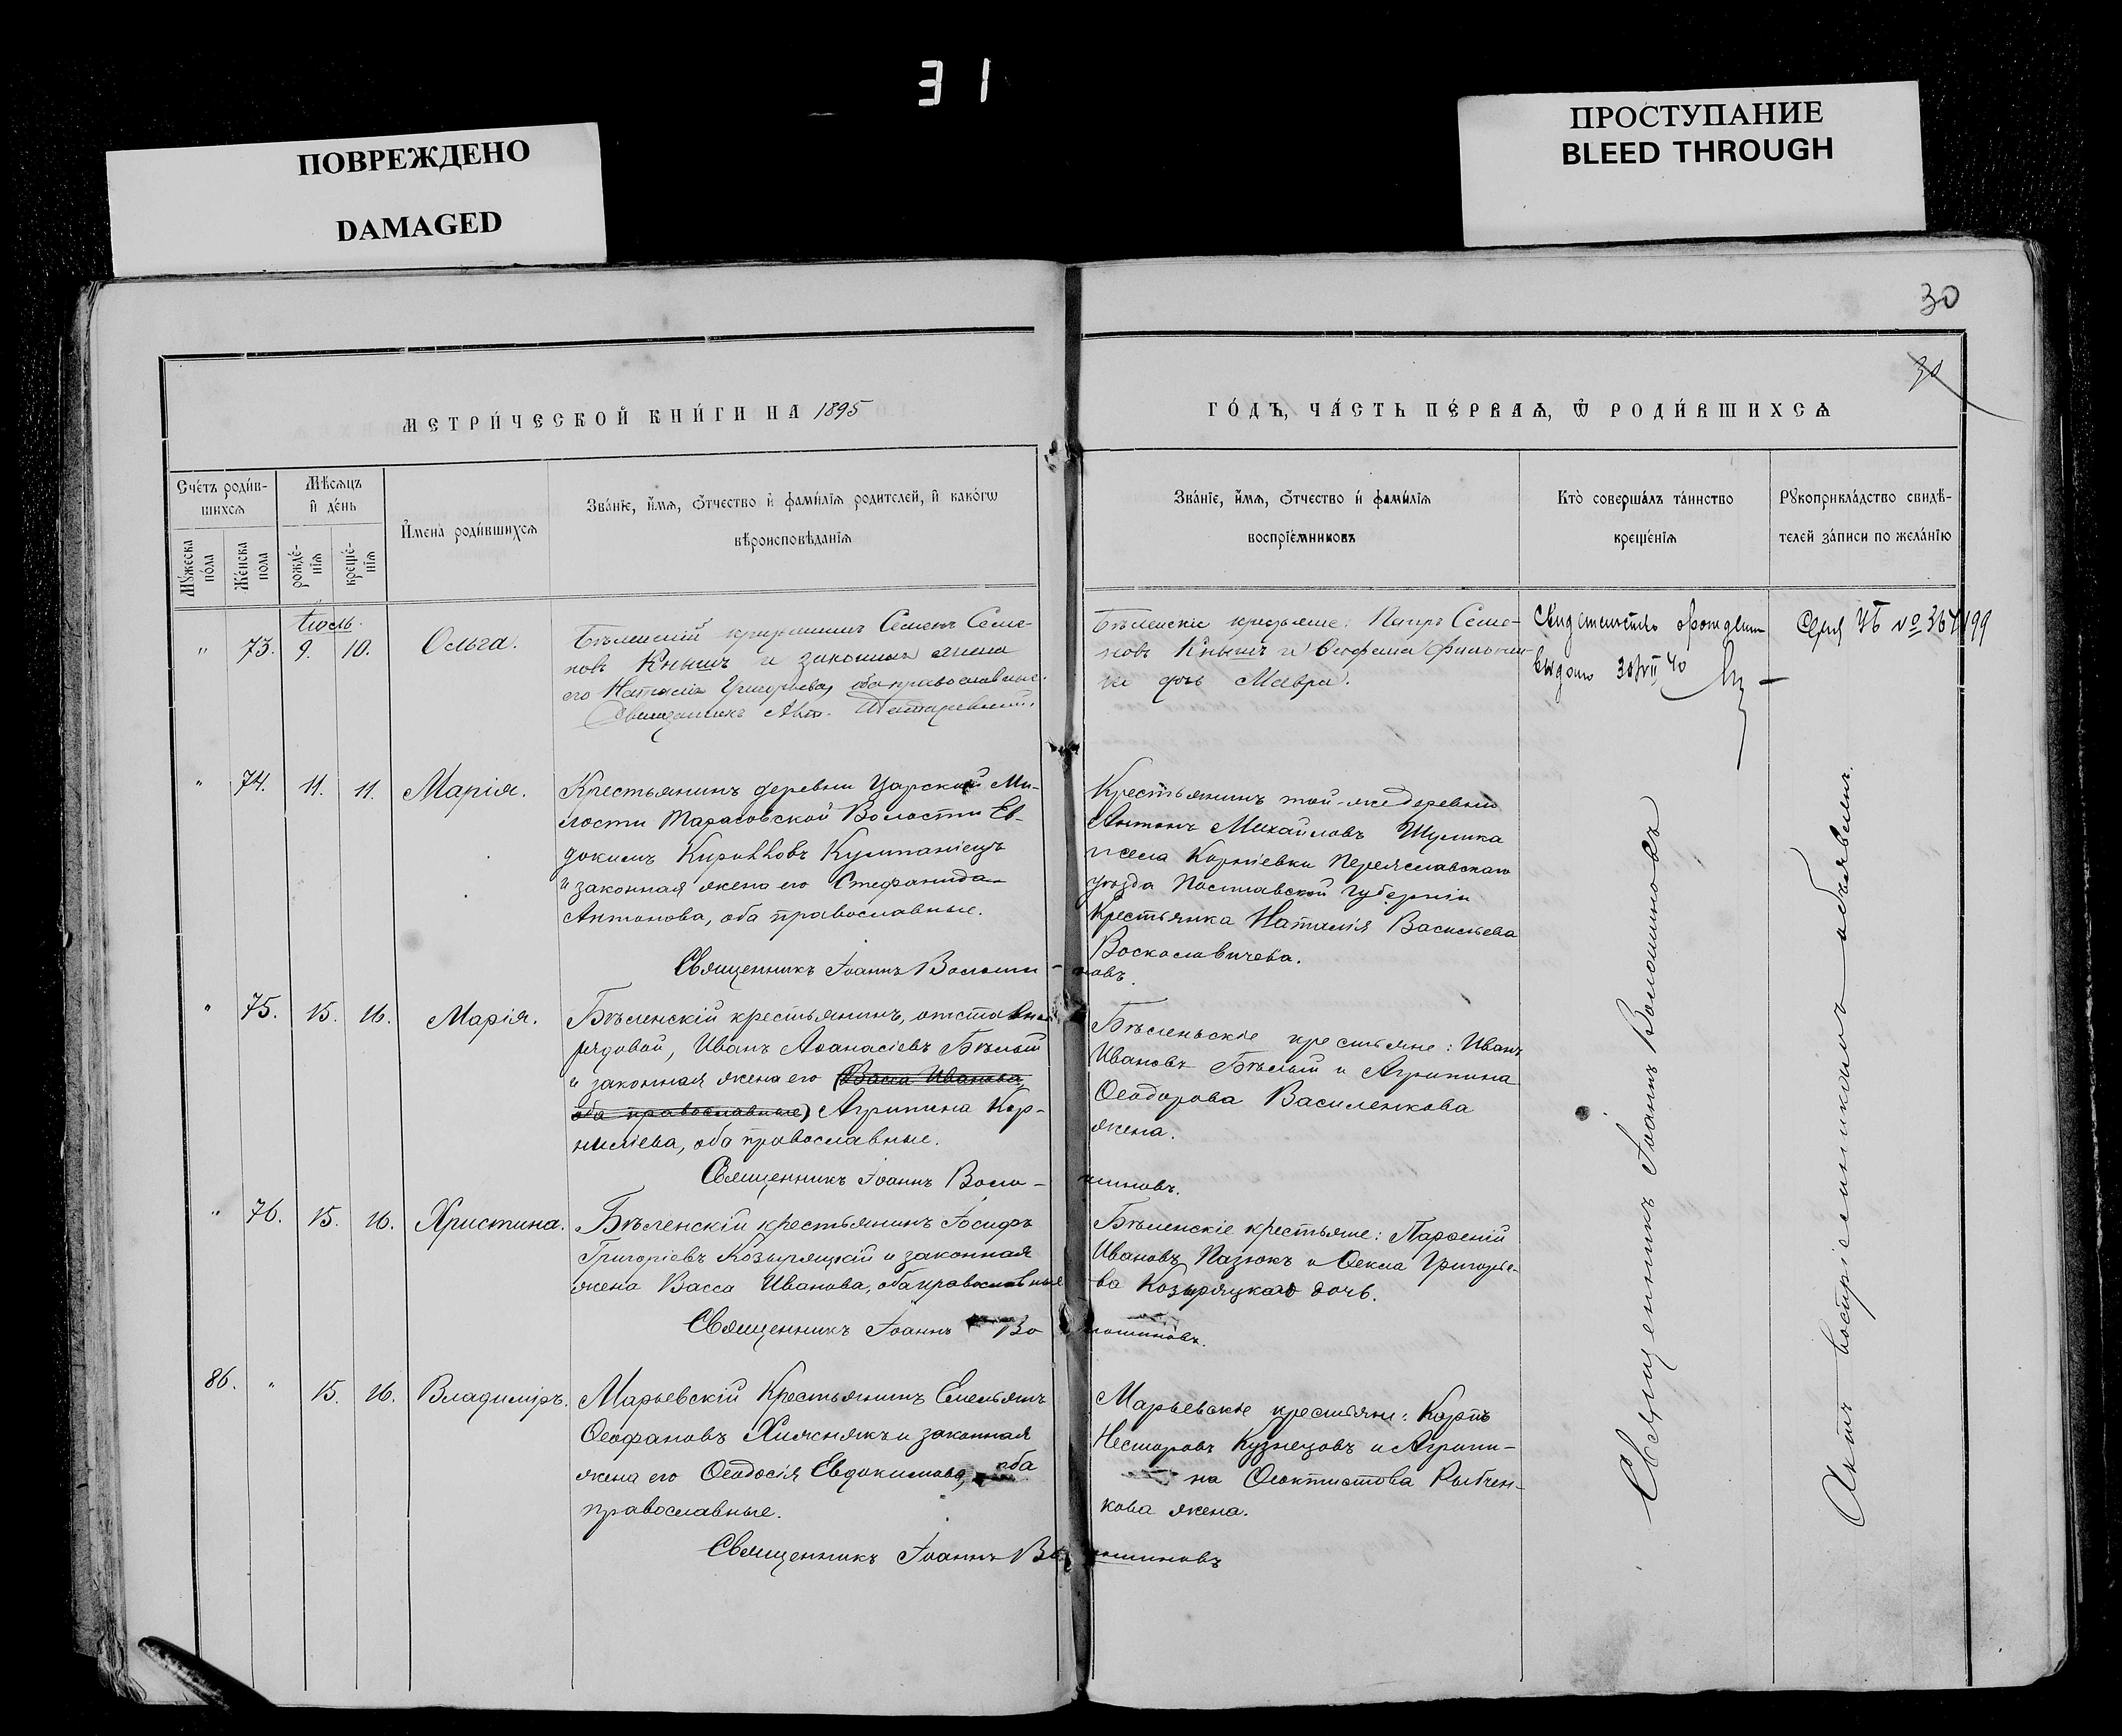 31
ПОВРЕЖДЕНО
DAMAGED
ПРОСТУПАНИЕ
BLEED THROUGH
30
30
МЕТРИ́ЧЕСКОЙ КНИ́ГИ НА 1895
ГО́ДЪ, ЧА́СТЬ ПЕ́РВАѦ, Ѽ РОДИ́ВШИХСѦ
Сче́тъ роди́в-
шихсѧ
Мѣ́сѧцъ
и҆ де́нь
Мꙋ́жеска
по́ла
Же́нска
пола
рожде́-
нїѧ
креще́-
нїѧ
И҆мена̀ роди́вшихсѧ
Зва́нїе, и҆́мѧ, ѻ҆́тчество и҆ фами́лїѧ родителей, и҆ како́гѡ
вѣроисповѣ́данїѧ
Зва́нїе, и҆́мѧ, ѻ҆́тчество и҆ фами́лїѧ
воспрїе́мниковъ
Кто̀ соверша́лъ та́инство
креще́нїѧ
Рꙋкоприкла́дство свидѣ́-
телей за́писи по жела́нїю
Іюль.
" 73. 9. 10. Ольга.
Бѣленскій крестьянинъ Семенъ Семе-
новъ Кнышъ и законная жена
его Наталія Григорьева, оба православные.
Священникъ
Бѣленскіе крестьяне: Петръ Семе-
новъ Кнышъ и
дочь Мавра.
Свидетельство о рождении
выдано 30/VII 40
Серия УБ № 367199
" 74. 11. 11. Марія.
Крестьянинъ деревни Царской Ми-
лости Тарасовской Волости Ев-
докимъ Кирилловъ
и законная жена его Стефанида
Антонова, оба православные.
Священникъ Іоаннъ Волоши-
новъ.
Крестьянинъ той-же деревни
Антонъ Михайловъ Шулика
и села Корніевки Переяславскаго
уѣзда Полтавской губерніи
Крестьянка Наталія Васильева
Воскословичева.
" 75. 15. 16. Марія.
Бѣленскій крестьянинъ, отставной
рядовой, Иванъ Аѳанасіевъ Бѣлый
и законная жена его (Васса Иванова,
оба православные) Агрипина Кор-
нилиева, оба православные.
Священникъ Іоаннъ Воло-
шиновъ.
Бѣленьскіе крестьяне: Иванъ
Ивановъ Бѣлый и Агрипина
Ѳеодорова Василенкова
жена.
" 76. 15. 16. Христина.
Бѣленскій крестьянинъ Іосифъ
Григоріевъ Козыряцкій и законная
жена Васса Иванова, оба православные
Священникъ Іоаннъ Во
лошиновъ.
Бѣленскіе крестьяне: Парѳеній
Ивановъ Пазюкъ и Ѳекла Григорье-
ва Козыряцкаго дочь.
86. " 15. 16. Владиміръ.
Марьевскій Крестьянинъ Емельянъ
Ѳеофановъ Хижнякъ и законная
жена его Ѳеодосія Евдокимова, оба
православные.
Священникъ Іоаннъ Во
лошиновъ
Марьевскіе крестьяне: Карпъ
Несторовъ Кузнецовъ и Агрипи-
на Ѳеоктистова Рыбчен-
кова жена.
Священникъ Іоаннъ Волошиновъ
Актъ воспріемникамъ объявленъ.